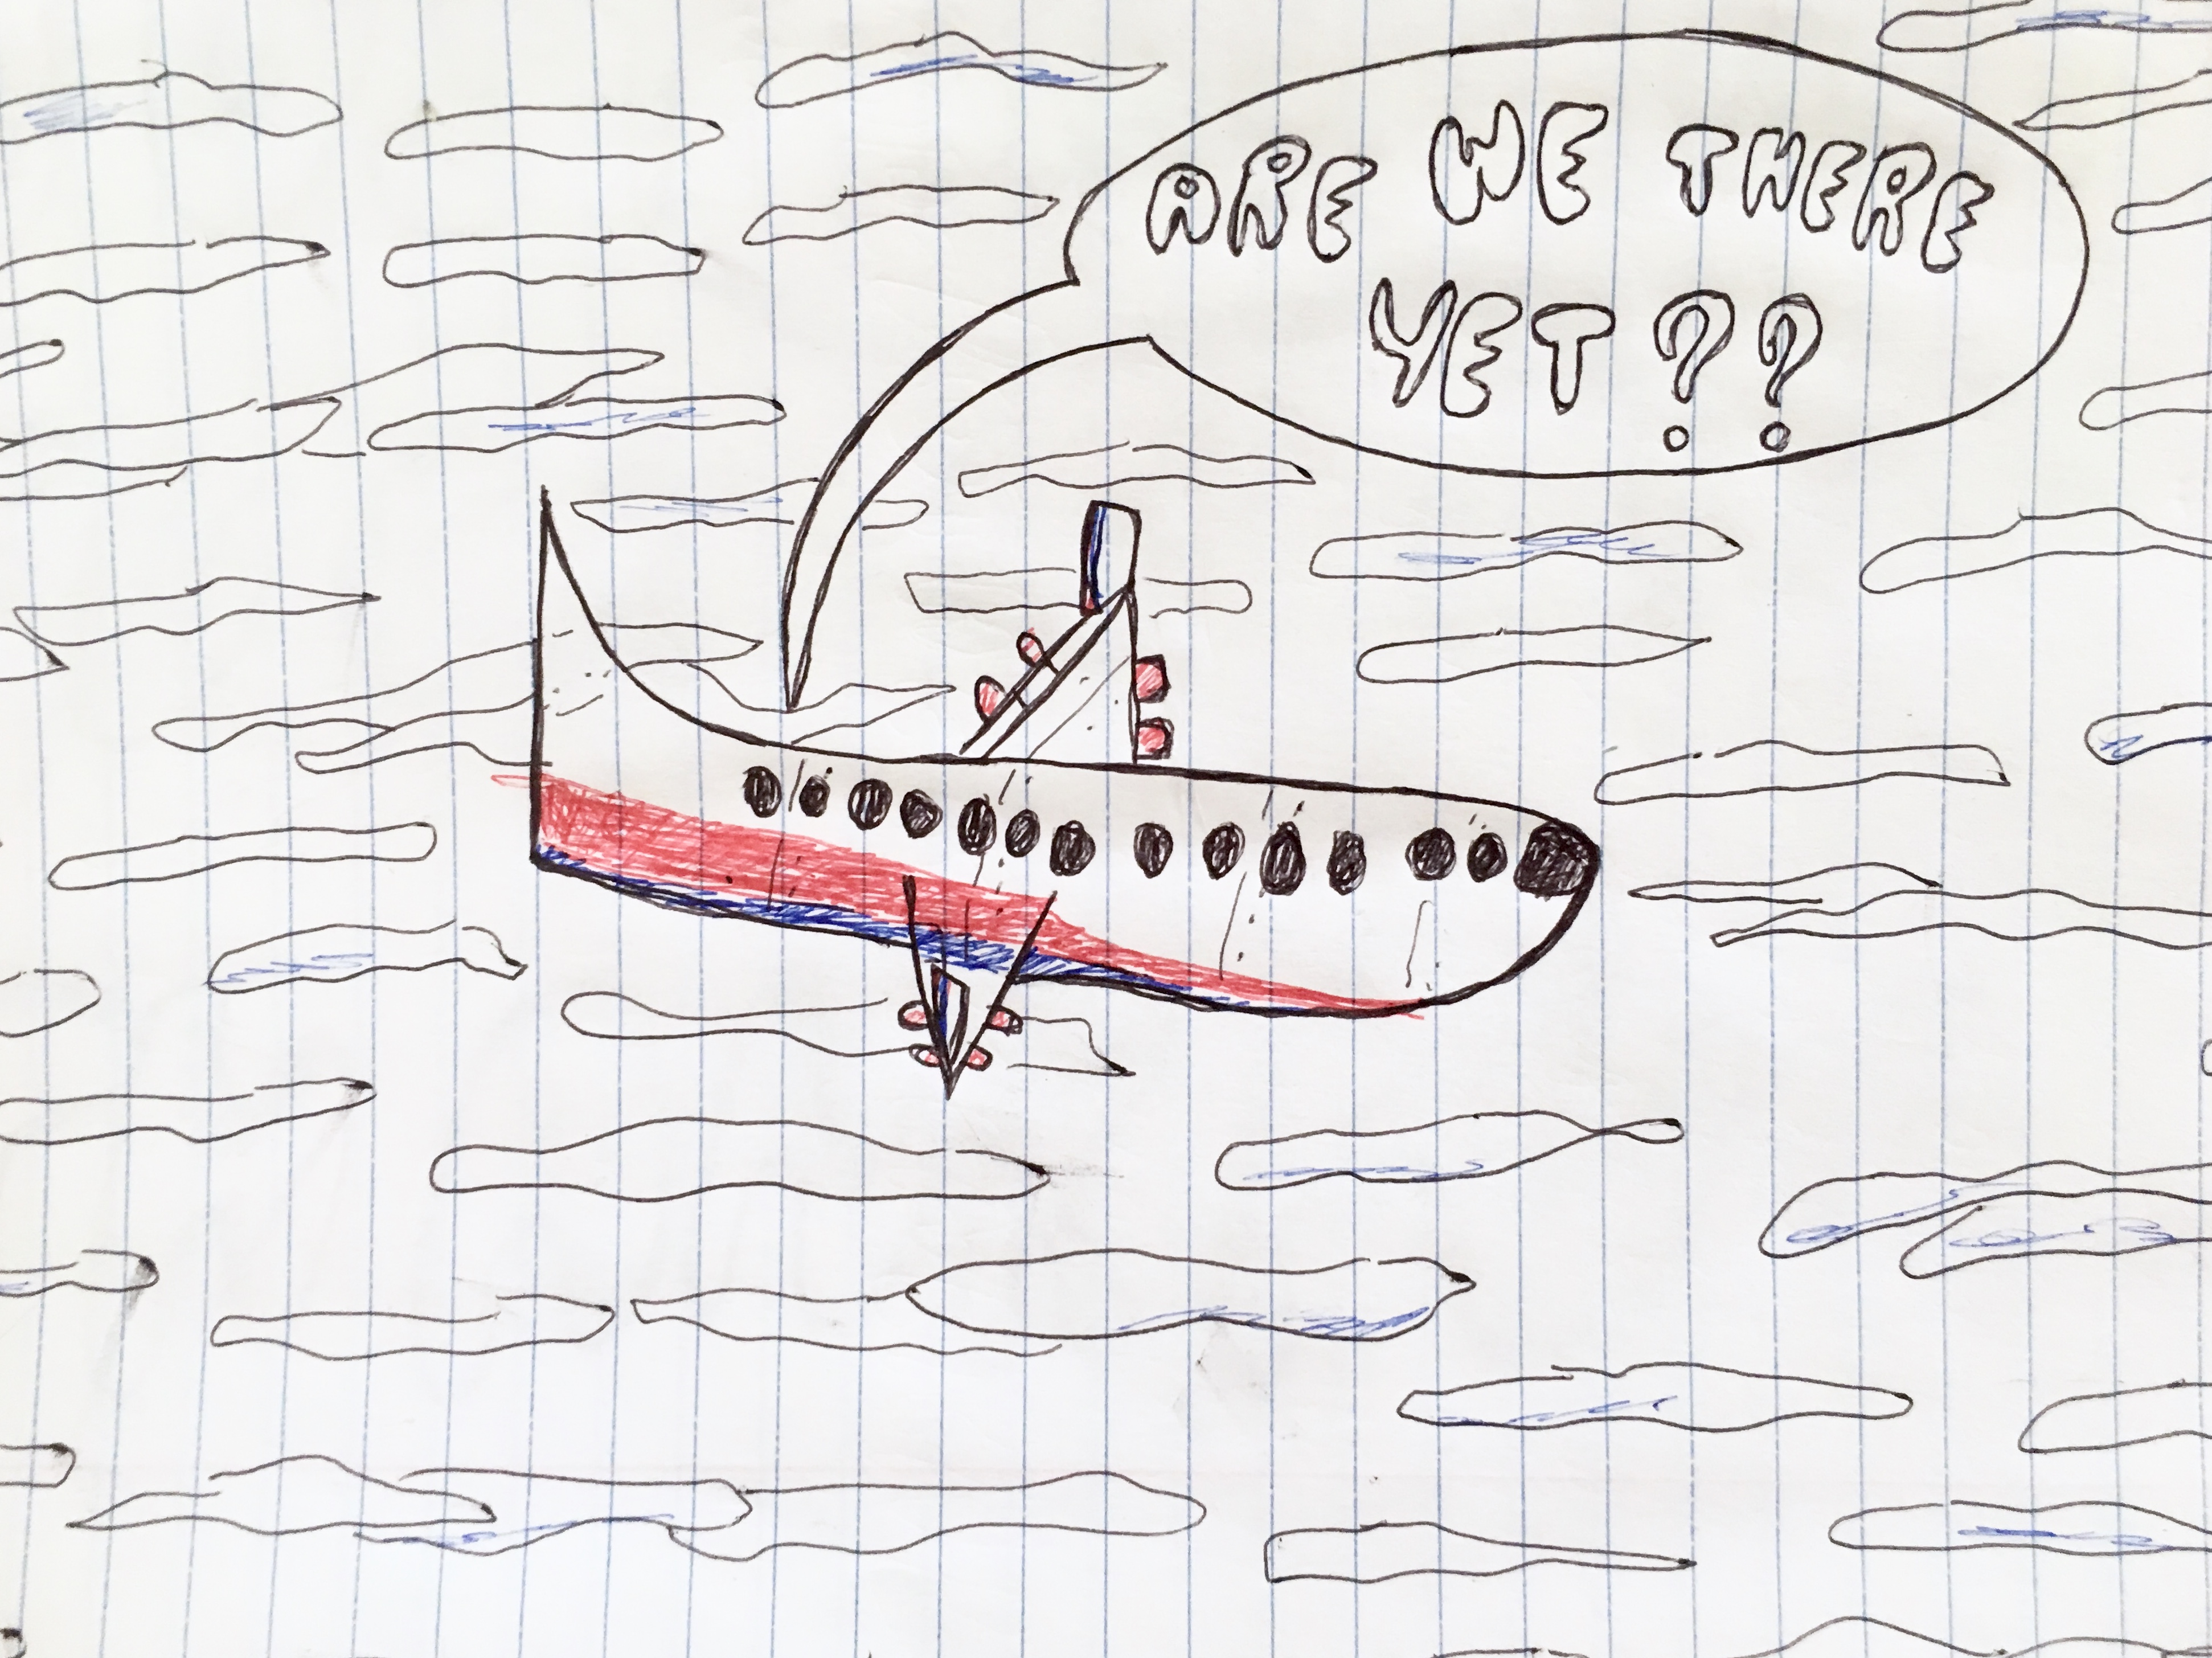 ARE WE THERE
YET??